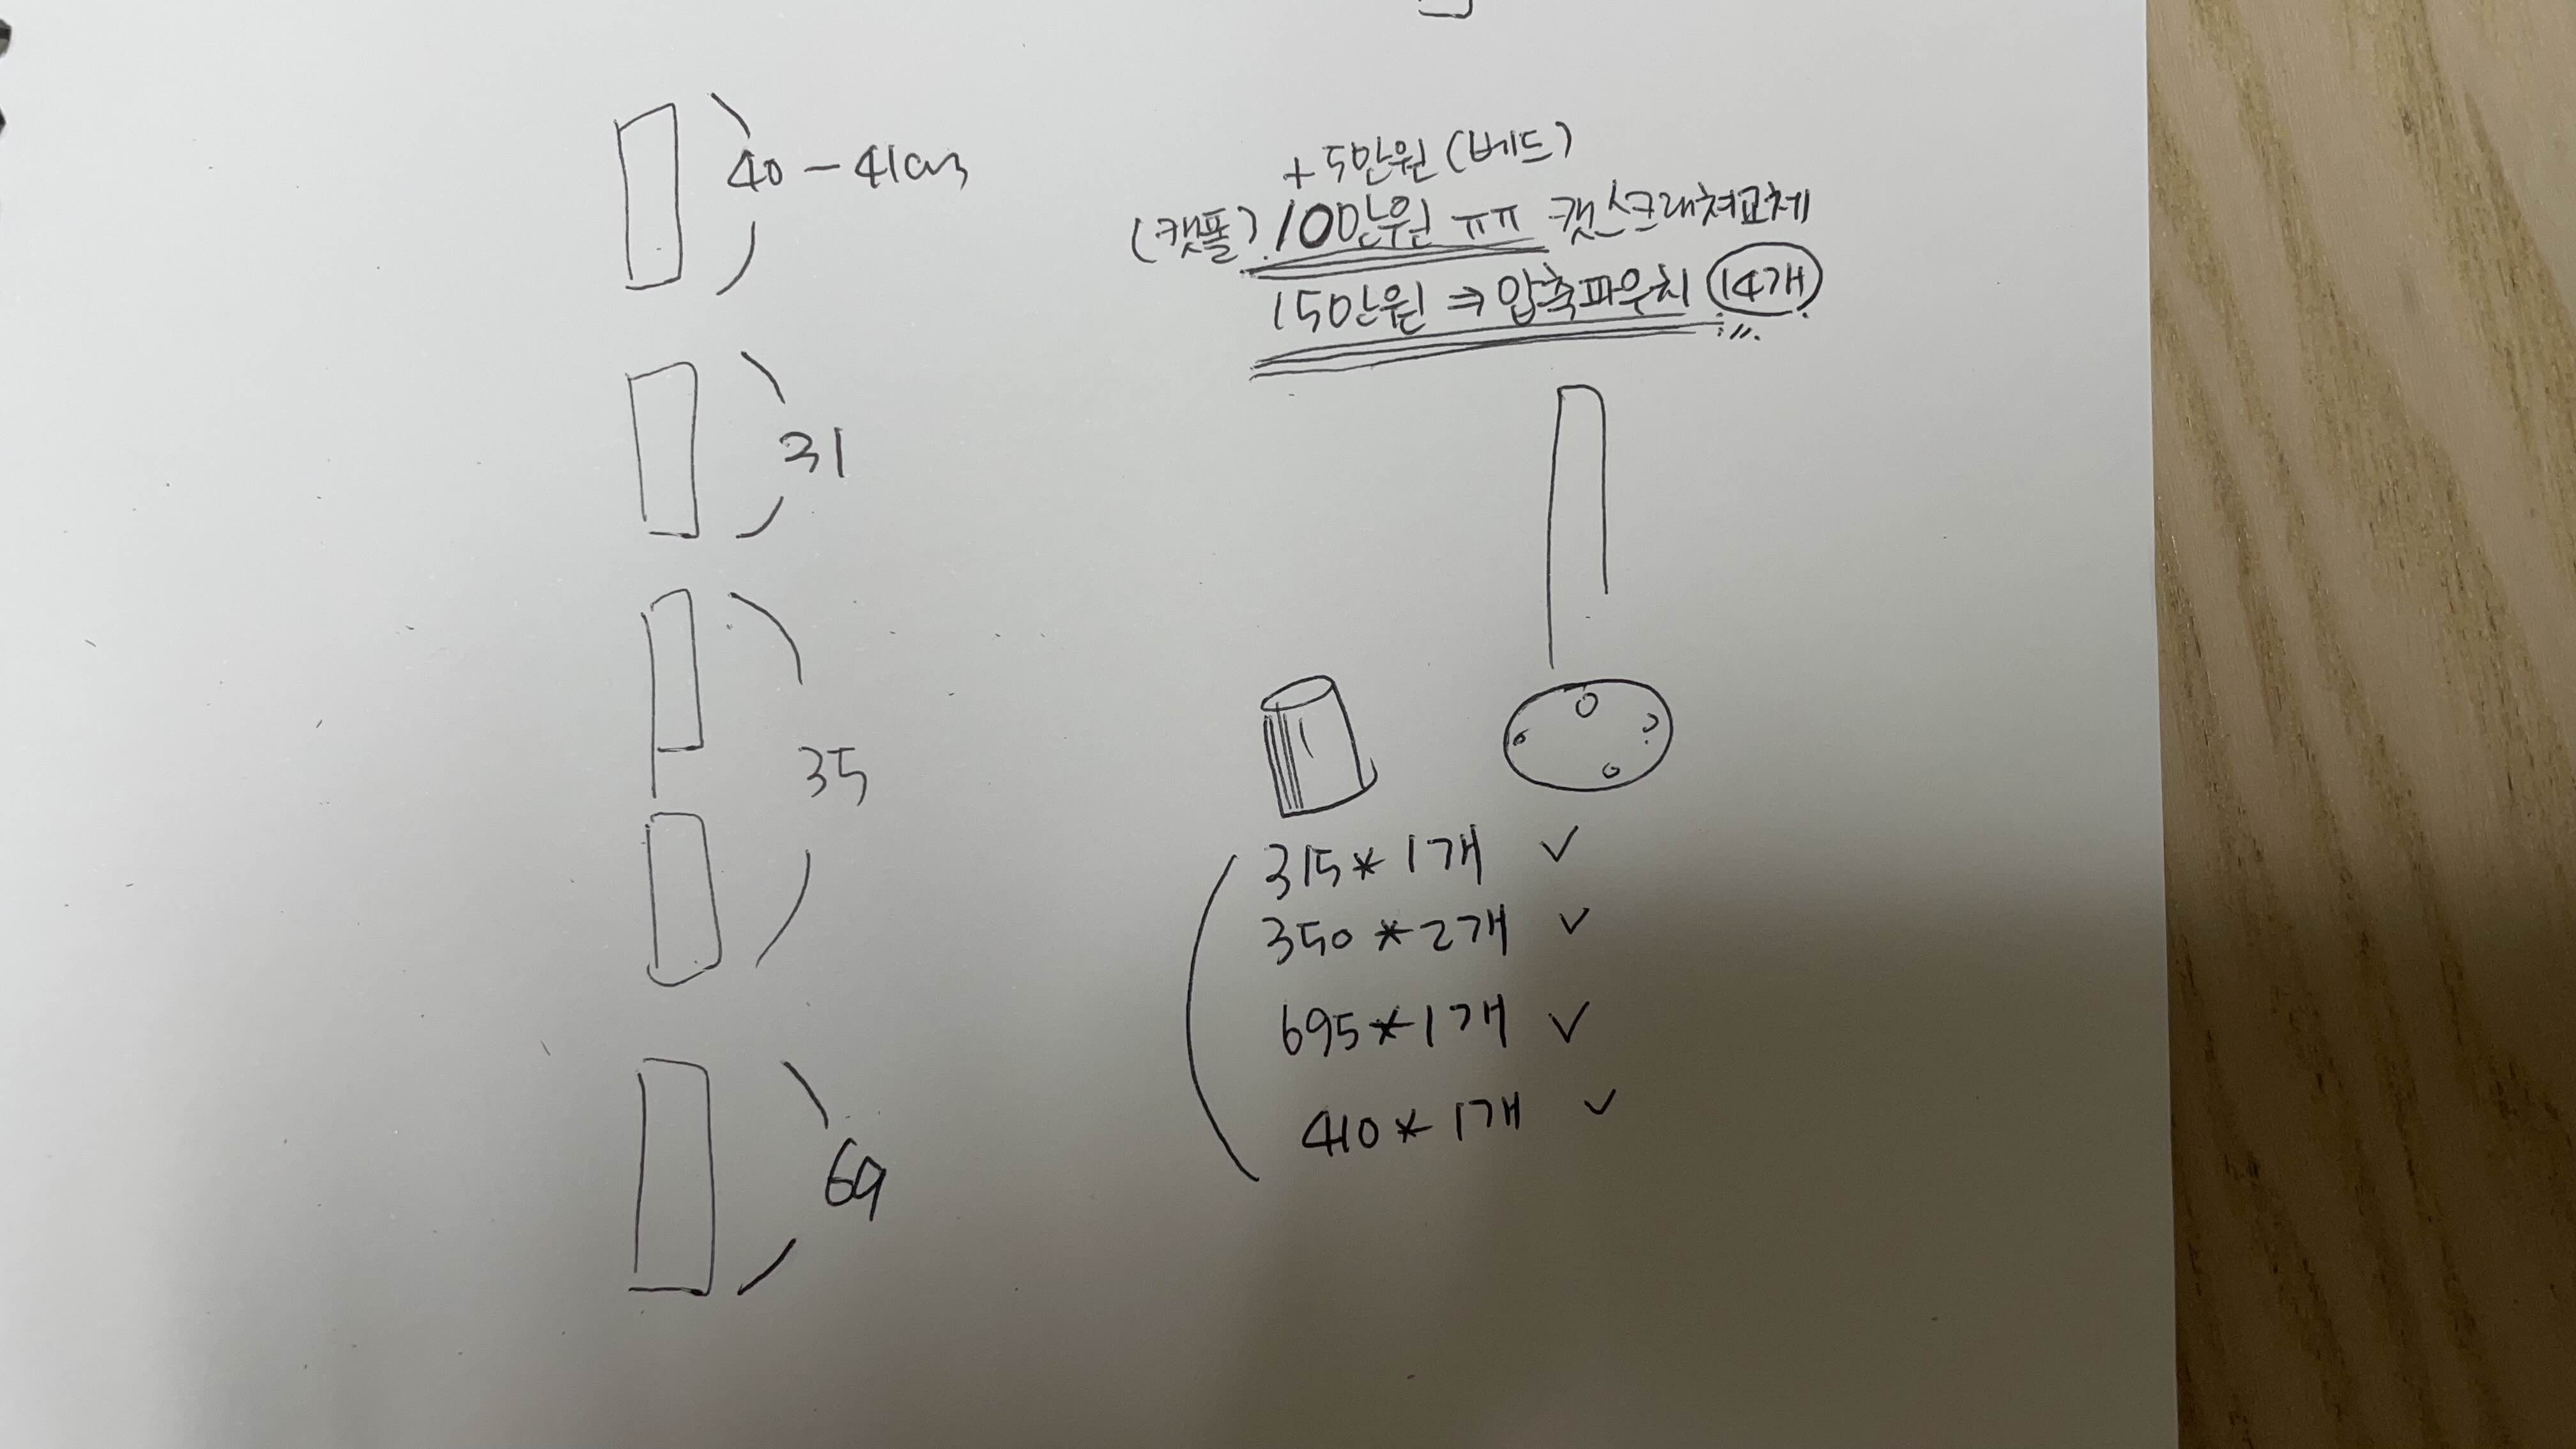 40 - 41cm
31
35
69
+ 5만원 (베드)
(캣폴) 100만원 ㅠㅠ 캣스크래쳐교체
150만원 ⇒ 압축파우치 14개
315 * 1개 ✓
350 * 2개 ✓
695 * 1개 ✓
410 * 1개 ✓